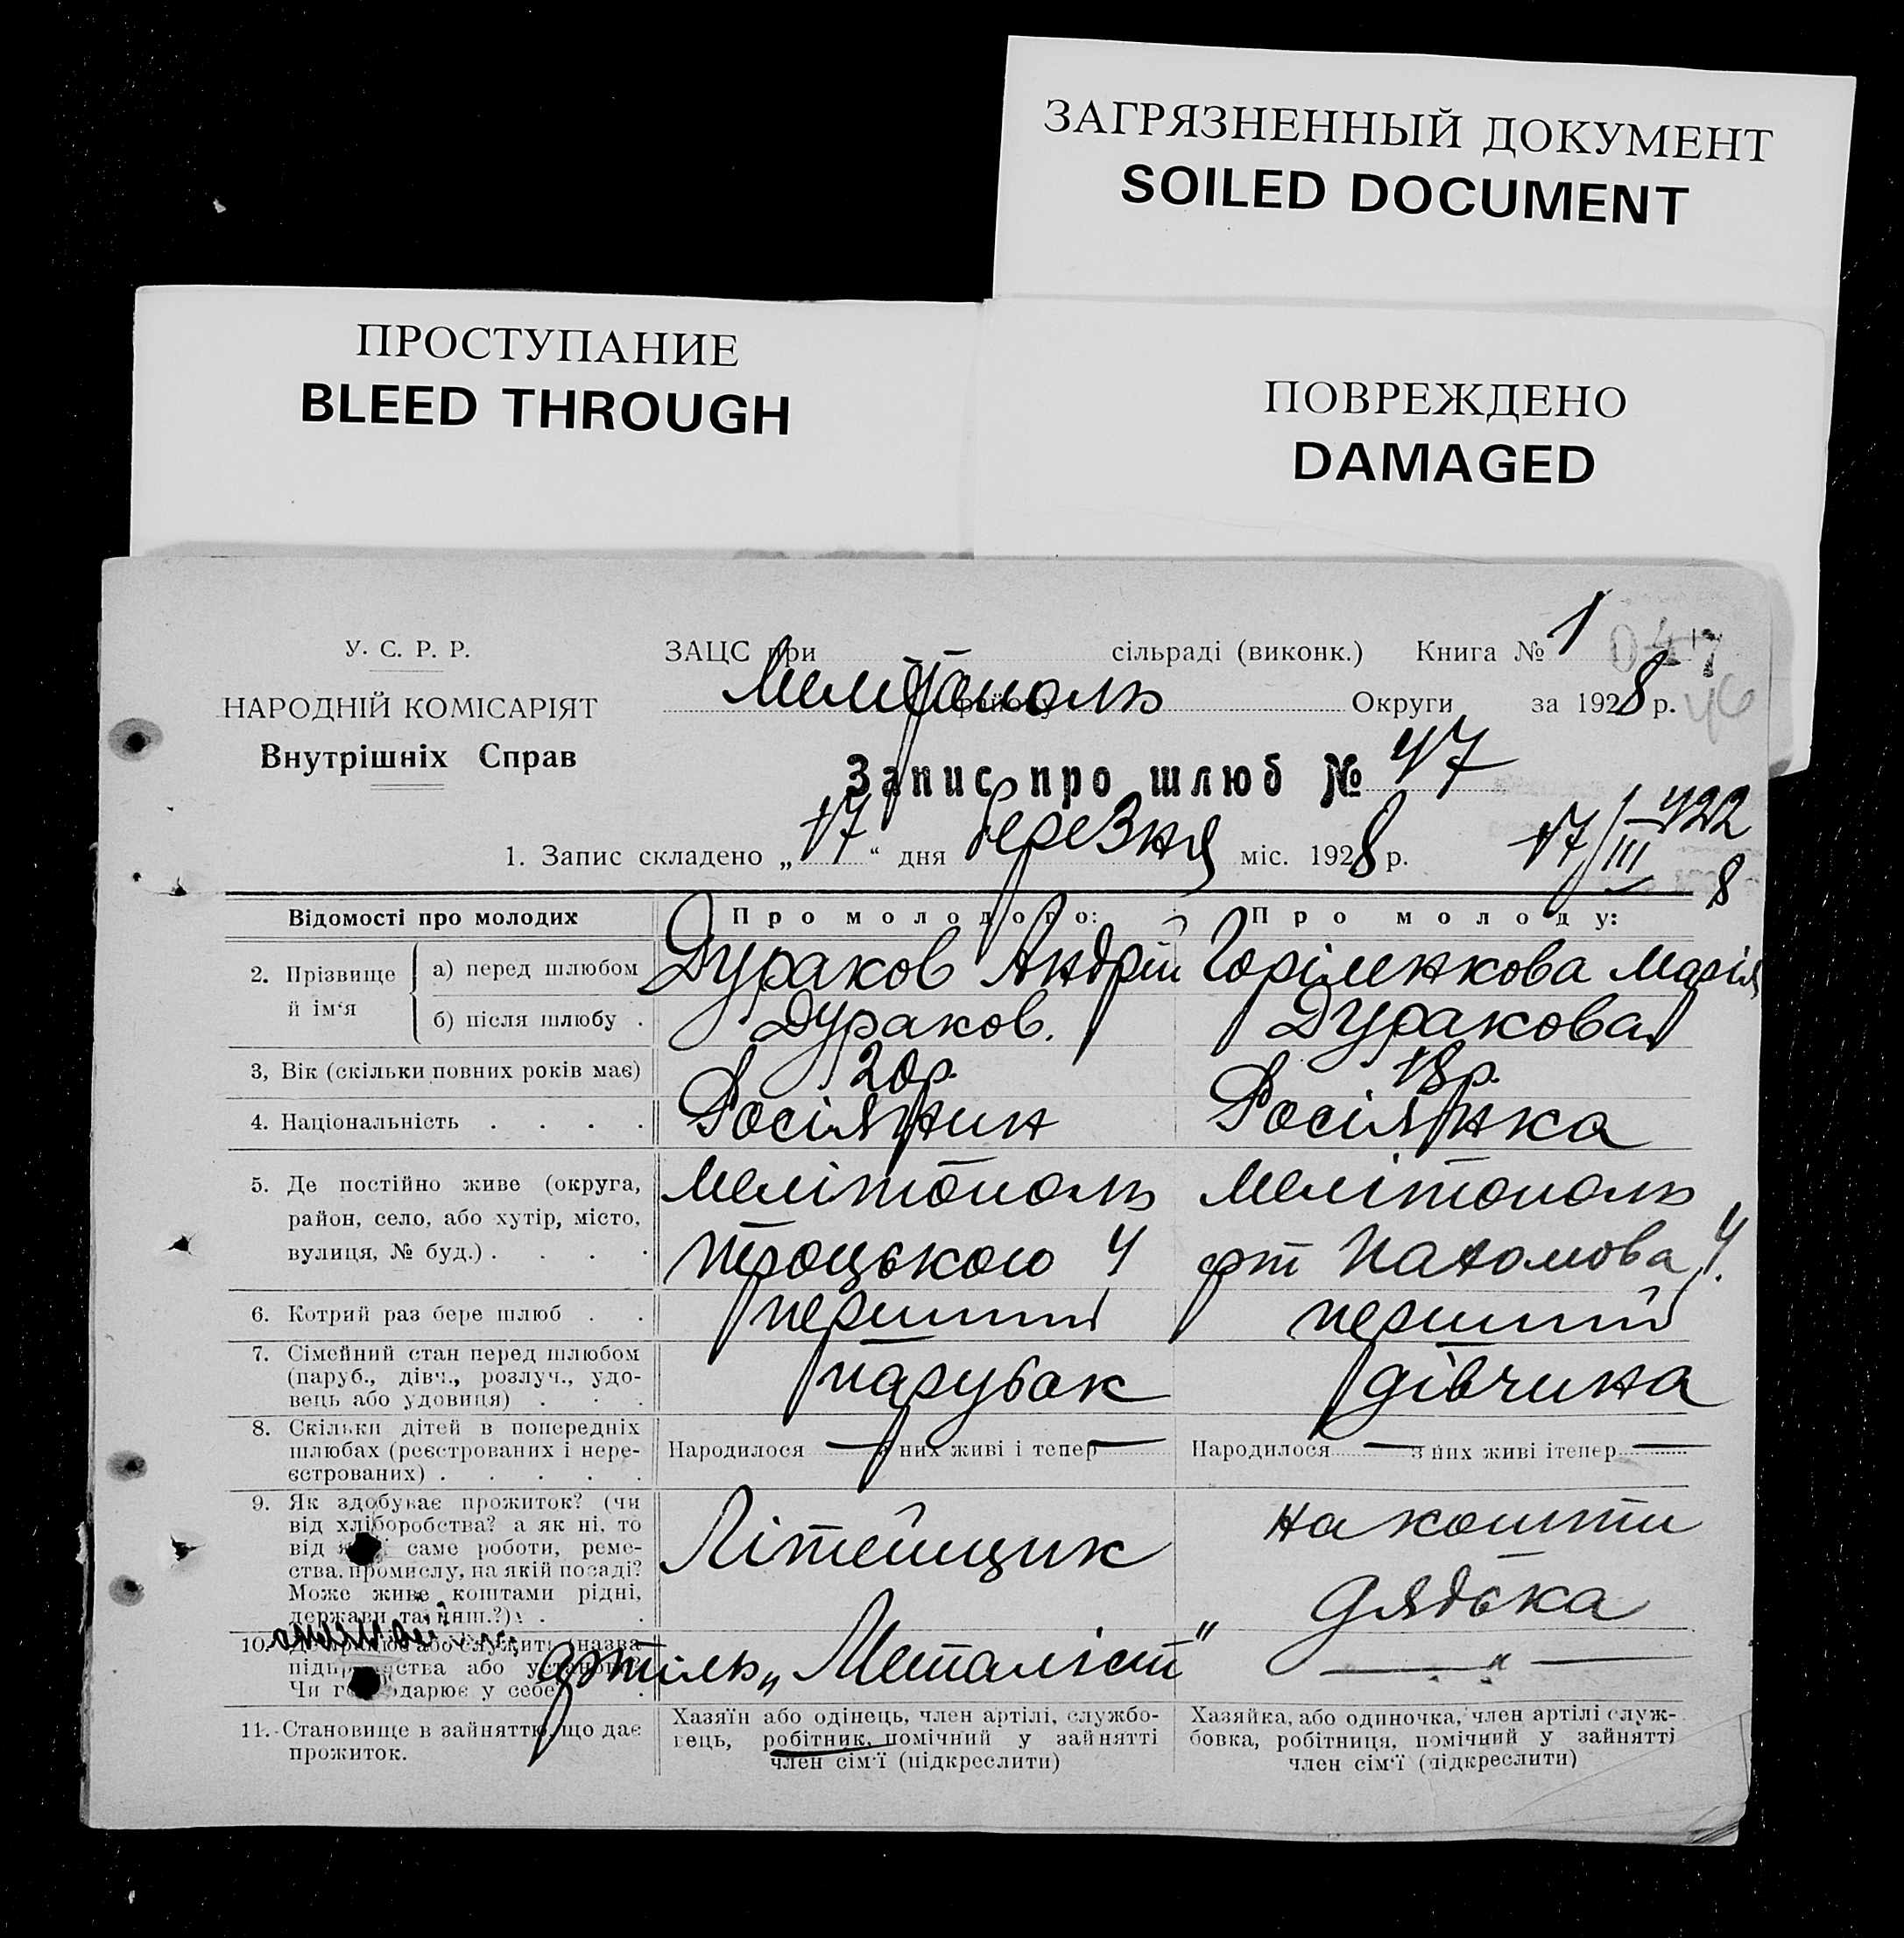 ЗАГРЯЗНЕННЫЙ ДОКУМЕНТ
SOILED DOCUMENT
ПРОСТУПАНИЕ
BLEED THROUGH
ПОВРЕЖДЕНО
DAMAGED
У. С. Р. Р.
НАРОДНІЙ КОМІСАРІЯТ
Внутрішніх Справ
ЗАЦС при сільраді (виконк.) Книга № 1 047
Мелітополь району Округи за 1928 р. 46
Запис про шлюб № 47
1. Запис складено „17“ дня березня міс. 1928 р. 17/III 8 422
Відомості про молодих Про молодого: Про молоду:
2. Прізвище й ім‘я а) перед шлюбом Дураков Андрій Горіленкова Марія
б) після шлюбу . Дураков. Дуракова
3, Вік (скільки повних років має) 20 р. 18 р.
4. Національність . . . . Росіянин Росіянка
5. Де постійно живе (округа, Мелітополь Мелітополь
район, село, або хутір, місто,
вулиця, № буд.) . . . . Троцького 4 4
6. Котрий раз бере шлюб . . перший перший
7. Сімейний стан перед шлюбом
(паруб., дівч., розлуч., удо-
вець або удовиця) . . . парубак дівчина
8. Скільки дітей в попередніх
шлюбах (реєстрованих і нере-
єстрованих) . . . . . Народилося — з них живі і тепер — Народилося — з них живі і тепер —
9. Як здобуває прожиток? (чи
від хліборобства? а як ні, то
від саме роботи, реме-
ства, промислу, на якій посаді?
Може живе коштами рідні,
держави та инш.?) . . Літейщик на кошти
дядька
10. Де працює або служить (назва
підприємства або установи?
Чи господарює у себе артіль „Металіст" — " —
11. Становище в зайняттю, що дає
прожиток.
Хазяїн або одінець, член артілі, службо-
вець, робітник, помічний у зайнятті
член сім‘ї (підкреслити)
Хазяйка, або одиночка, член артілі служ-
бовка, робітниця, помічний у зайнятті
член сім‘ї (підкреслити)